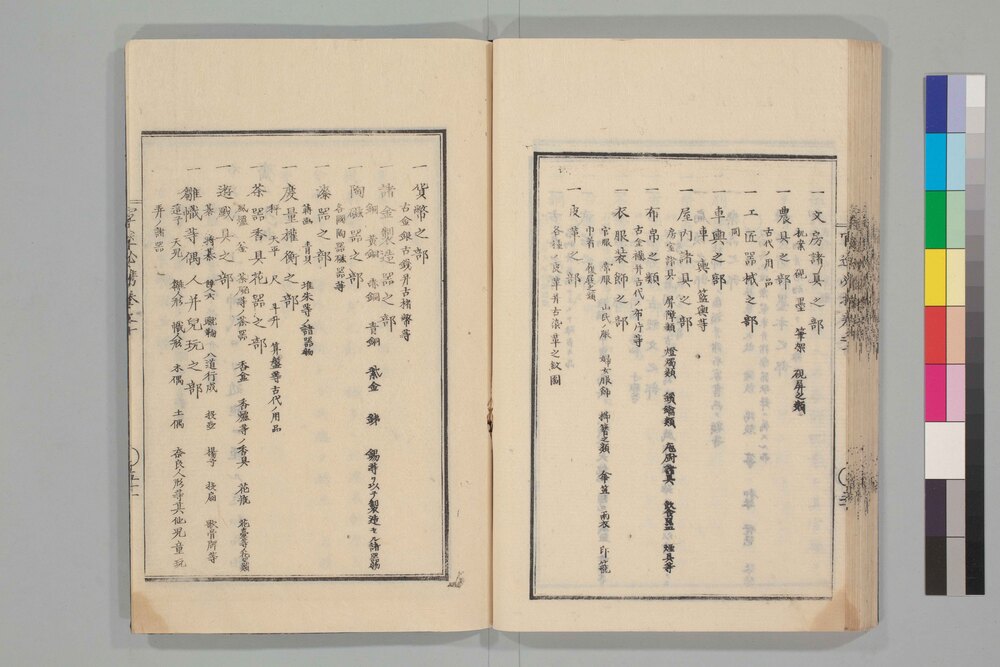 一 文房諸具之部
机案 硯 墨 筆架 硯屏之類
一 農具之部
古代ノ用品
一 工匠器械之部
同
一 車輿之部
車 輿 籃輿等
一 屋内諸具之部
房室諸具 屏障類 燈燭類 鎖鑰類 庖厨諸具 飲食器皿 煙具等
一 布帛之類
古金襴并古代ノ布片等
一 衣服装飾之部
官服 常服 山民ノ服 婦女服飾 櫛簪之類 傘笠 雨衣 印籠
巾着 履屐之類
一 皮革之部
各種ノ皮革并古染革之紋圖
一 貨幣之部
古金銀古錢并古楮幣等
一 諸金製造器之部
銅 黄銅 赤銅 青銅 紫金 鉄 錫等ヲ以テ製造セル諸器物
一 陶磁器之部
各國陶器磁器等
一 漆器之部
蒔画 青貝 堆朱等ノ諸器物
一 度量權衡之部
秤 天平 尺 斗升 算盤等古代ノ用品
一 茶器香具花器之部
風爐 釜 茶碗等ノ茶器 香盒 香爐等ノ香具 花瓶 花臺等花器類
一 遊戲具之部
碁 將棊 雙六 蹴鞠 八道行成 投壺 楊弓 投扇 歌骨牌等
一 雛幟等偶人并兒玩之部
這子 天児 雛人形 幟人形 木偶 土偶 奈良人形等其他児童玩
弄ノ諸器